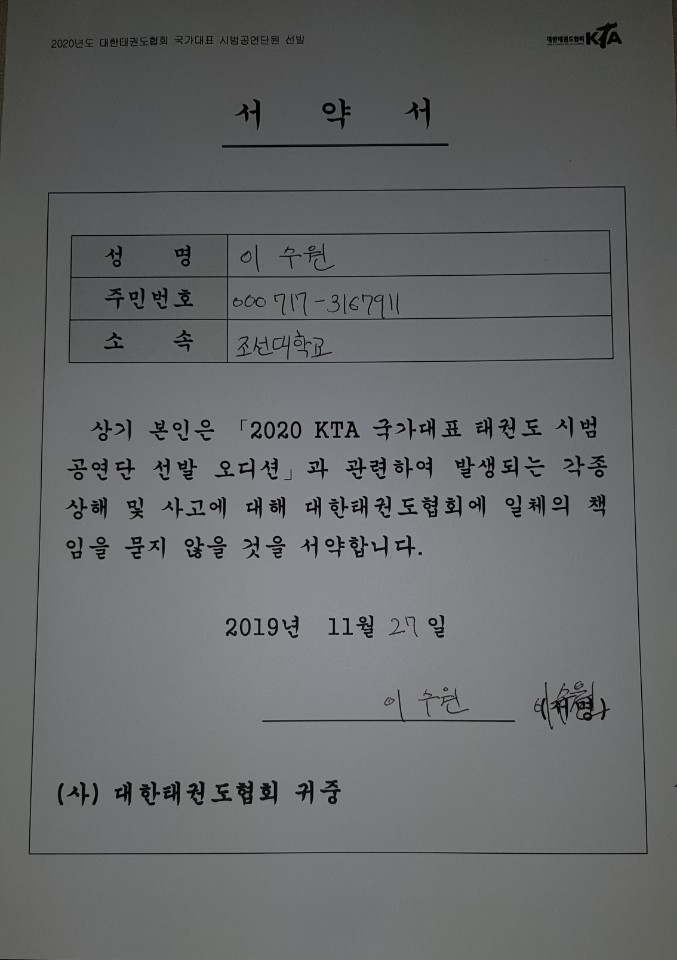 2020년도 대한태권도협회 국가대표 시범공연단원 선발
대한태권도협회 KTA
서 약 서
성 명 이 수원
주민번호 000717-3167911
소 속 조선대학교
상기 본인은 「2020 KTA 국가대표 태권도 시범
공연단 선발 오디션」과 관련하여 발생되는 각종
상해 및 사고에 대해 대한태권도협회에 일체의 책
임을 묻지 않을 것을 서약합니다.
2019년 11월 27일
이 수원 (서명)
(사) 대한태권도협회 귀중